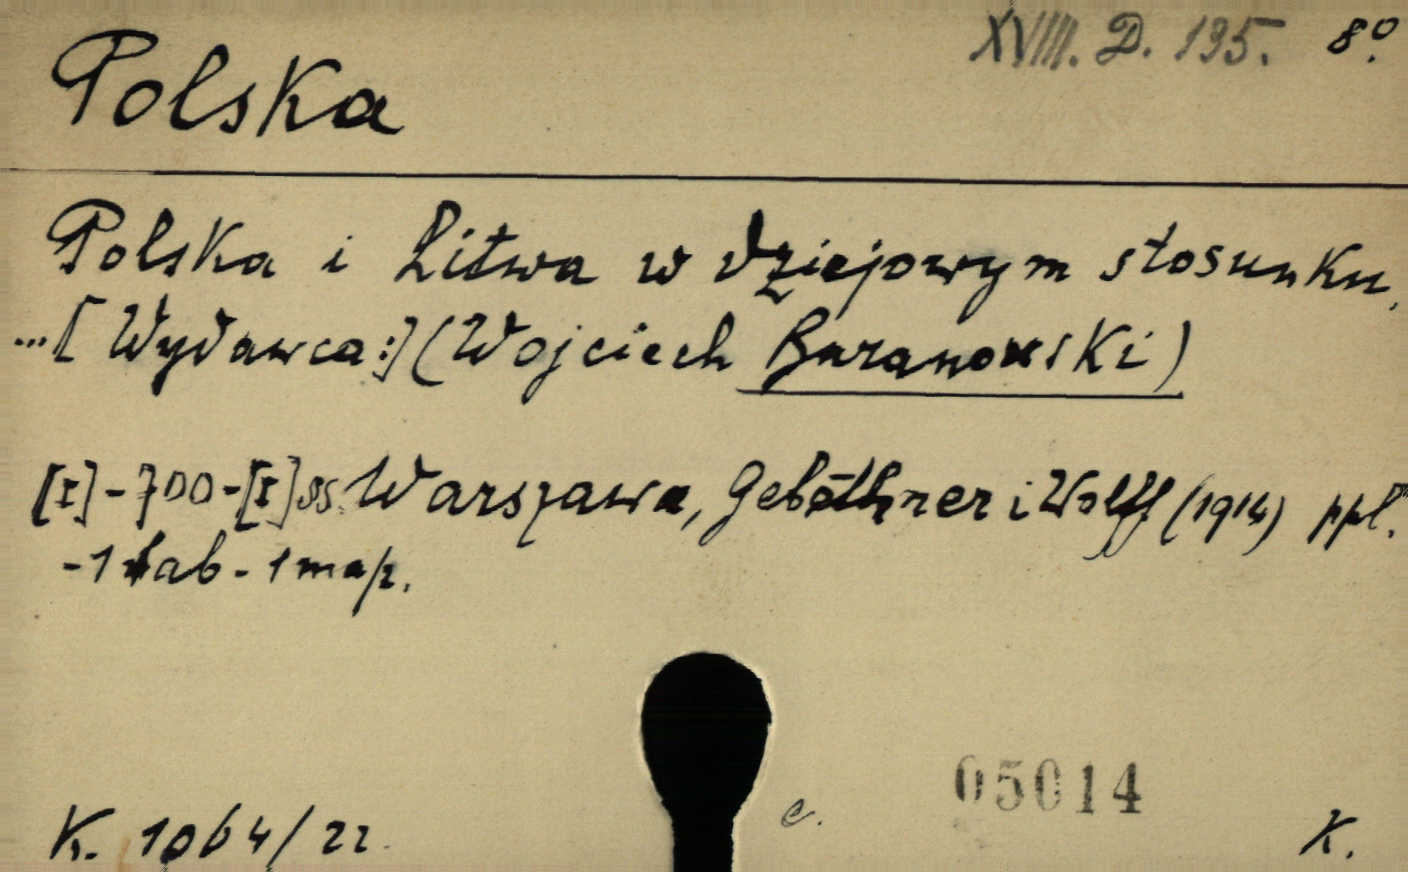 XVIII. D. 195. 8º.
Polska
Polska i Litwa w dziejowym stosunku,
...[Wydawca:] (Wojciech Baranowski)
[I]-700-[I] ss. Warszawa, Gebethner i Wolff (1914) ppł.
-1 tab-1 map.
05014
K. 1064/22. c. K.